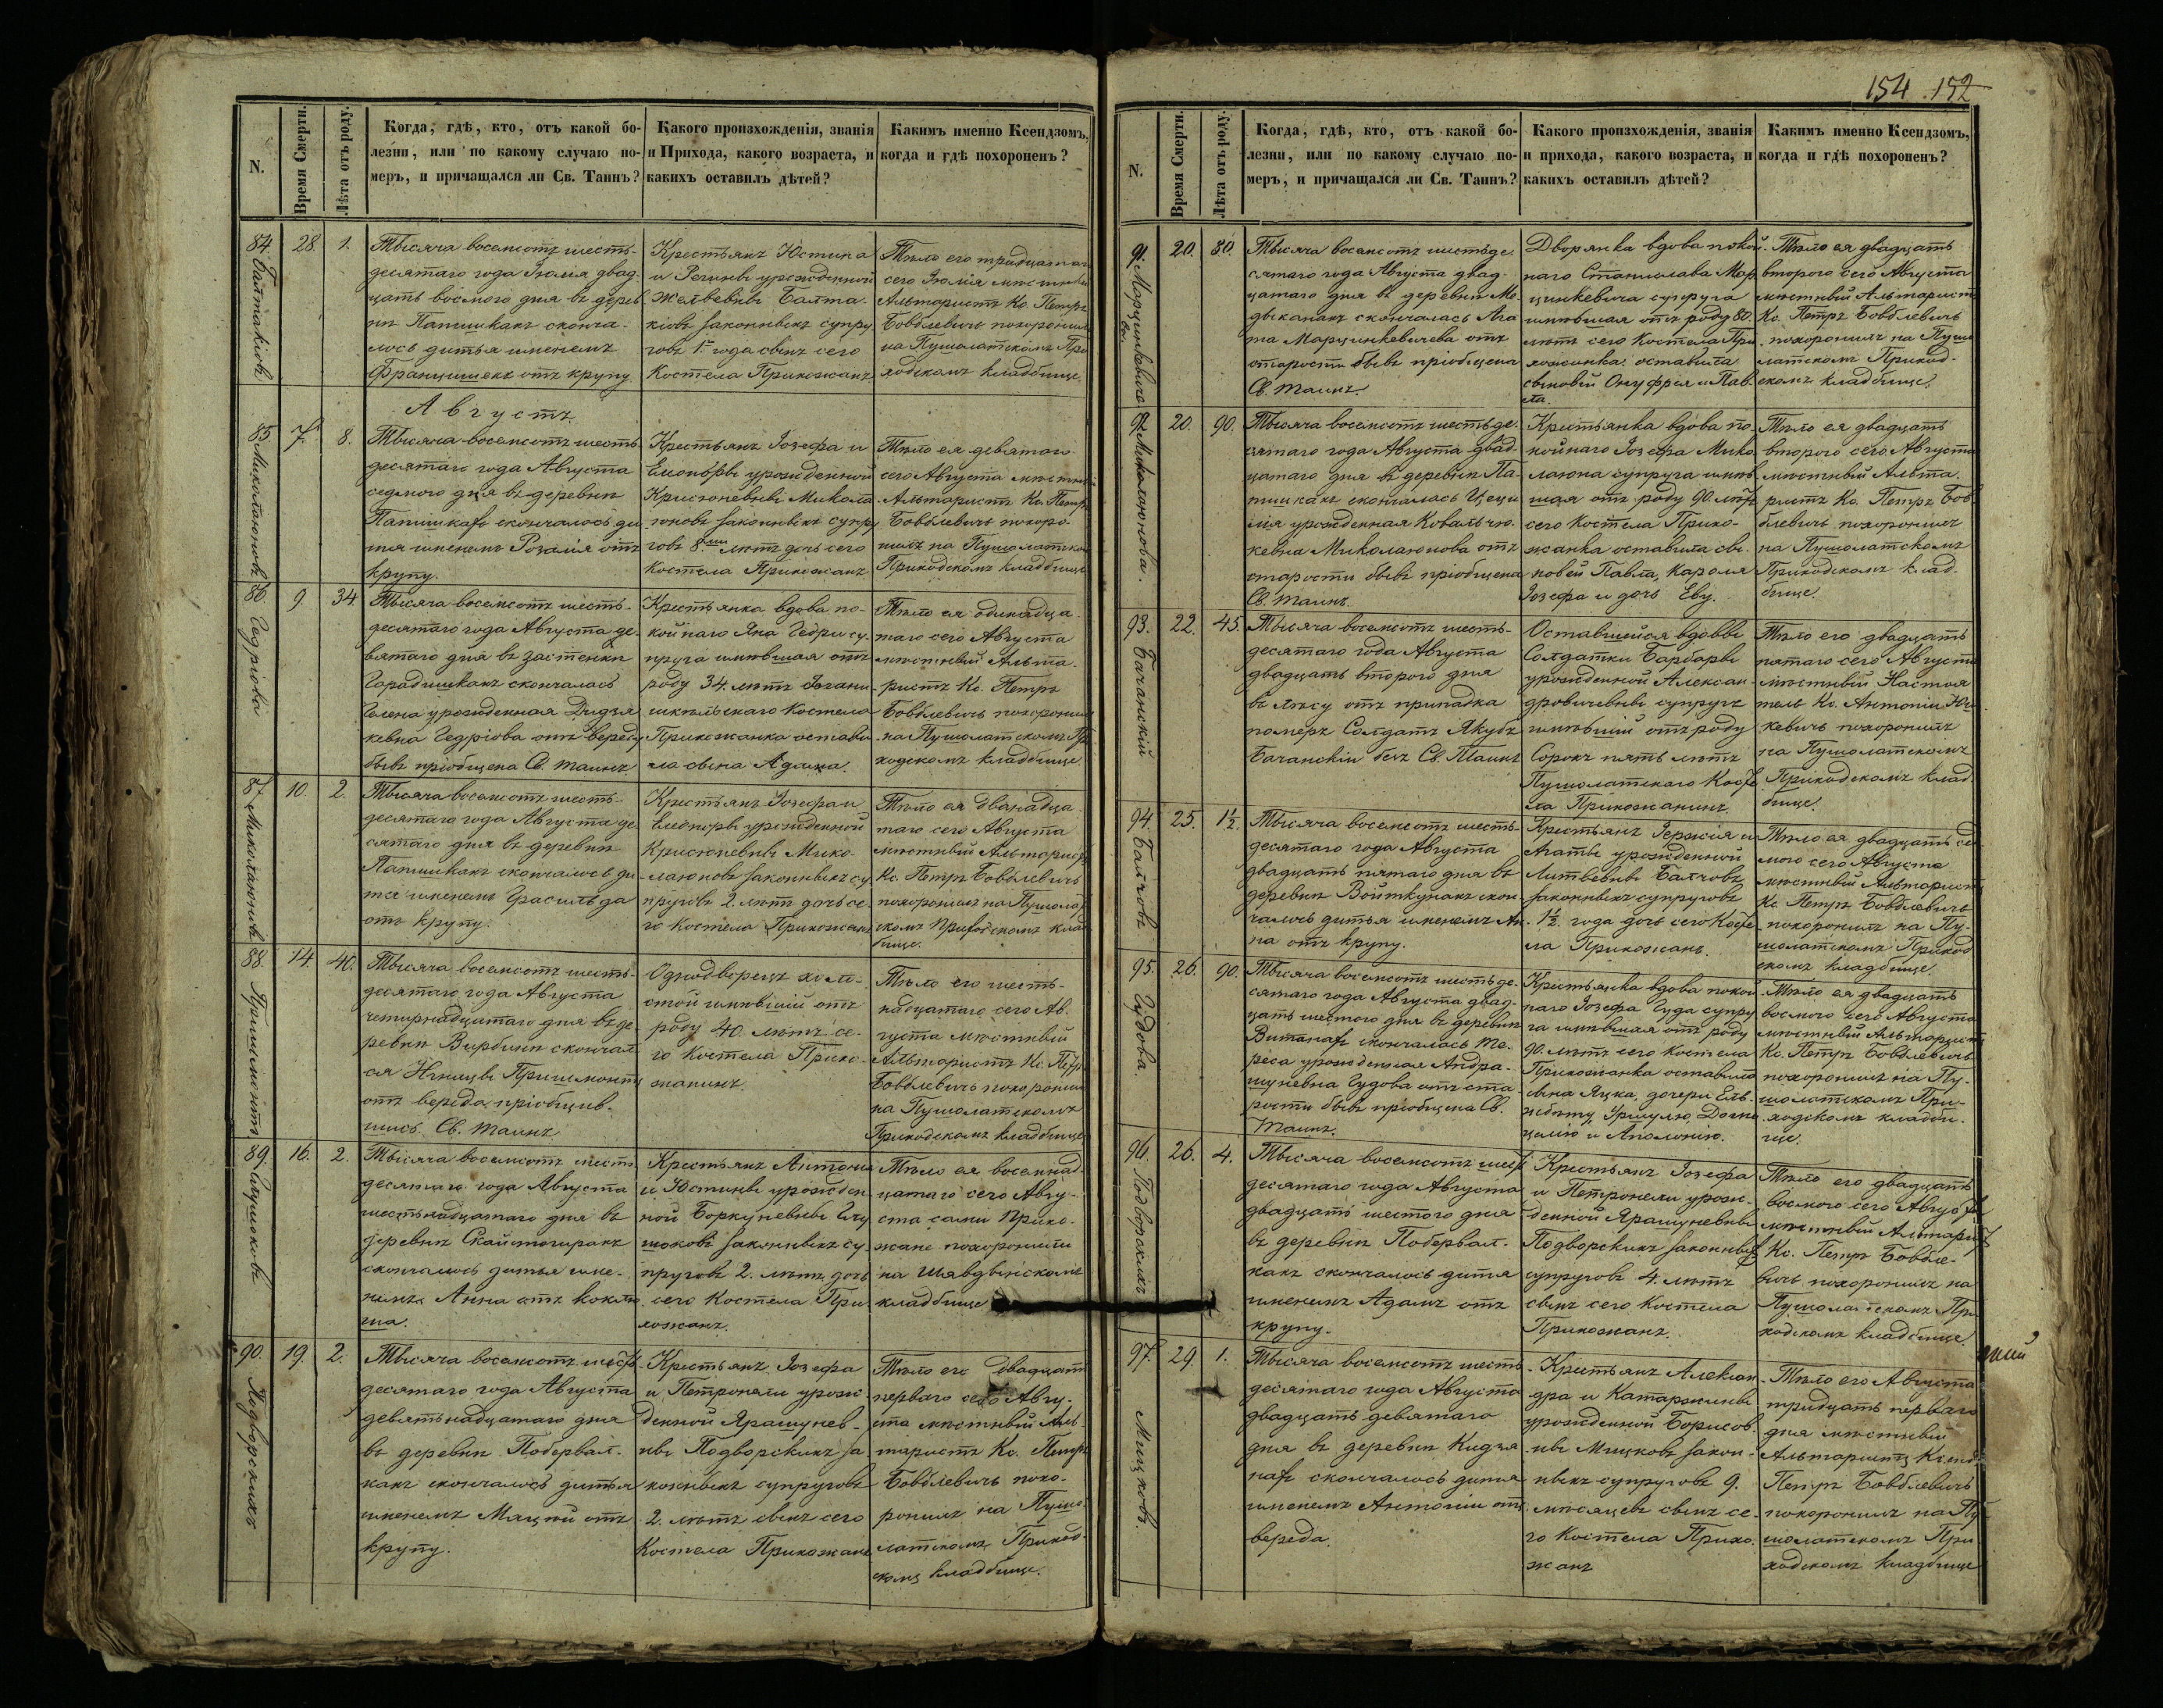 154 . 152
N.
Время Смерти.
Лѣта отъ роду.
Когда, гдѣ, кто, отъ какой бо-
лезни, или по какому случаю по-
меръ, и причащался ли Св. Таинъ?
Какого произхожденія, званія
и Прихода, какого возраста, и
какихъ оставилъ дѣтей?
Какимъ именно Ксендзомъ,
когда и гдѣ похороненъ?
84. Балтакіовъ
28. 1.
Тысяча восемсотъ шесть-
десятаго года Іюля двад-
цать восмого дня въ дерев
нѣ Папишкахъ сконча-
лось дитья именемъ
Францишекъ отъ крупу
Крестьянъ Юстина
и Регины урожденной
Желвевны Балта-
кіовъ законныхъ супру
говъ 1. года сынъ сего
Костела Прихожанъ
Тѣло его тридцатаго
сего Іюлія мѣстный
Альтаристъ Кс. Петръ
Бовблевичь похоронилъ
на Пушолатскомъ При
ходскомъ кладбище.
Августъ.
85. Миколаюновъ
7. 8.
Тысяча восемсотъ шесть
десятаго года Августа
седмого дня въ деревни
Папишкахъ скончалось ди
тя именемъ Розалія отъ
крупу.
Крестьянъ Іозефа и
Елеоноры урожденной
Крисюневны Микола
юновъ законныхъ супру
говъ 8ми лѣтъ дочь сего
Костела Прихожанъ
Тѣло ея девятого
сего Августа мѣстный
Альтаристъ Кс. Петръ
Бовблевичь похоро-
нилъ на Пушолатском
Приходскомъ кладбище
86. Гедріова
9. 34
Тысяча восемсотъ шесть-
десятаго года Августа де-
вятаго дня въ застенки
Гарадишкахъ скончалась
Елена урожденная Дидзя
кевна Гедріова отъ вереду
бывъ пріобщена Св. таинъ.
Крестьянка вдова по-
койнаго Яна Гедри су-
пруга имѣвшая отъ
роду 34. лѣтъ Іогани-
шкельскаго Костела
Прихожанка остави
ла сына Адама.
Тѣло ея одинадца-
таго сего Августа
мѣстный Альта-
ристъ Кс. Петръ
Бовблевичь похоронилъ
на Пушолатскомъ Пр
ходскомъ кладбище.
87. Миколаюновъ
10. 2.
Тысяча восемсотъ шесть-
десятаго года Августа де-
сятаго дня въ деревни
Папишкахъ скончалось ди
тя именемъ Грасильда
отъ крупу.
Крестьянъ Іозефа и
Елеоноры урожденной
Крисюневны Мико-
лаюновъ законныхъ су
пруговъ 2. лѣтъ дочь се-
го Костела Прихожанъ
Тѣло ея дванадца-
таго сего Августа
мѣстный Альтаристъ
Кс. Петръ Бовблевичь
похоронилъ на Пушолат
скомъ Приходскомъ клад
бище.
88.
14. 40.
Тысяча восемсотъ шесть-
десятаго года Августа
четырнадцатаго дня въ де-
ревни Вирбини скончал
ся Игнацы
отъ вереда пріобщив-
шись Св. таинъ.
Однодворецъ холо-
стой имѣвшій отъ
роду 40 лѣтъ се-
го Костела Прихо-
жанинъ
Тѣло его шесть-
надцатаго сего Ав-
густа мѣстный
Альтаристъ Кс. Петръ
Бовблевичь похоронилъ
на Пушолатскомъ
Приходскомъ кладбище
89. Глушоковъ
16. 2.
Тысяча восемсотъ шесть
десятаго года Августа
шестьнадцатаго дня въ
деревни Скайстогирахъ
скончалось дитья име-
немъ Анна отъ коклю
ша.
Крестьянъ Антона
и Юстины урожден
ной Боркуневны Глу
шоковъ законныхъ су
пруговъ 2. лѣтъ дочь
сего Костела При-
хожанъ.
Тѣло ея восемнад
цатаго сего Авгу-
ста сами Прихо-
жане похоронили
на
кладбище
90. Подворскихъ
19. 2.
Тысяча восемсотъ шесть
десятаго года Августа
девятьнадцатаго дня
въ деревни Побервал-
кахъ скончалось дитья
именемъ Мацѣй отъ
крупу.
Крестьянъ Іозефа
и Петронели урож-
денной Ярашунев-
ны Подворскихъ за
конныхъ супруговъ
2. лѣтъ сынъ сего
Костела Прихожанъ
Тѣло его двадцать
перваго сего Авгу-
ста мѣстный Аль-
таристъ Кс. Петръ
Бовблевичь похо-
ронилъ на Пушо
латскомъ Приход-
скомъ кладбище.
N.
Время Смерти.
Лѣта отъ роду.
Когда, гдѣ, кто, отъ какой бо-
лезни, или по какому случаю по-
меръ, и причащался ли Св. Таинъ?
Какого произхожденія, званія
и прихода, какого возраста, и
какихъ оставилъ дѣтей?
Какимъ именно Ксендзомъ,
когда и гдѣ похороненъ?
91. Марцинкевичова
20. 80.
Тысяча восемсотъ шестьде-
сятаго года Августа двад-
цатаго дня въ деревни Ме-
дыканахъ скончалась Ага
та Марцинкевичева отъ
старости бывъ пріобщена
Св. Таинъ.
Дворянка вдова покой-
наго Станислава Мар
цинкевича супруга
имѣвшая отъ роду 80
лѣтъ сего Костела При
хожанка оставила
сыновей Онуфрея и Пав-
ла.
Тѣло ея двадцать
второго сего Августа
мѣстный Альтаристъ
Кс. Петръ Бовблевичь
похоронилъ на Пушо
латскомъ Приход-
скомъ кладбище.
92. Миколаюнова.
20. 90.
Тысяча восемсотъ шестьде-
сятаго года Августа двад-
цатаго дня въ деревни Па-
пишкахъ скончалась Цеци
лія урожденная Ковальчю-
кевна Миколаюнова отъ
старости бывъ пріобщена
Св. таинъ
Крестьянка вдова по-
койнаго Іозефа Мико
лаюна супруга имѣв
шая отъ роду 90. лѣтъ
сего Костела Прихо-
жанка оставила сы-
новей Павла, Кароля
Іозефа и дочь Еву.
Тѣло ея двадцать
второго сего Августа
мѣстный Альта-
ристъ Кс. Петръ Бов
блевичь похоронилъ
на Пушолатскомъ
Приходскомъ клад-
бище.
93. Бачанскій
22. 45.
Тысяча восемсотъ шесть-
десятаго года Августа
двадцать второго дня
въ лѣсу отъ припадка
померъ Солдатъ Якубъ
Бачанскій безъ Св. Таинъ
Оставшейся вдовы
Солдатки Барбары
урожденной Алексан-
дровичевны супругъ
имѣвшій отъ роду
Сорокъ пять лѣтъ
Пушолатскаго Косте
ла Прихожанинъ
Тѣло его двадцать
пятаго сего Августа
мѣстный Настоя
тель Кс. Антоній
похоронилъ
на Пушолатскомъ
Приходскомъ клад
бище.
94. Балчовъ
25. 1½.
Тысяча восемсотъ шесть-
десятаго года Августа
двадцать пятаго дня въ
деревни Войткунахъ скон-
чалось дитья именемъ Ан-
на отъ крупу.
Крестьянъ Іержія и
Агаты урожденной
Литвевны Балчовъ
законныхъ супруговъ
1½. года дочь сего Косте
ла Прихожанъ.
Тѣло ея двадцать сед
мого сего Августа
мѣстный Альтаристъ
Кс Петръ Бовблевичь
похоронилъ на Пу-
шолатскомъ Приход
скомъ кладбище.
95. Гудова.
26. 90.
Тысяча восемсотъ шестьде-
сятаго года Августа двад-
цать шестого дня въ деревни
скончалась Те-
реса урожденная Андра-
шуневна Гудова отъ ста
рости бывъ пріобщена Св.
Таинъ.
Крестьянка вдова покой
наго Іозефа Гуда супру
га имѣвшая отъ роду
90. лѣтъ сего Костела
Прихожанка оставила
сына Яцка, дочери Ель-
жбѣту, Уршулю,
и Аполонію.
Тѣло ея двадцать
восмого сего Августа
мѣстный Альтаристъ
Кс. Петръ Бовблевичь
похоронилъ на Пу-
шолатскомъ При-
ходскомъ кладби-
ще.
96. Подворскихъ
26. 4.
Тысяча восемсотъ шесть
десятаго года Августа
двадцать шестого дня
въ деревни Побервал-
кахъ скончалось дитя
именемъ Адамъ отъ
крупу.
Крестьянъ Іозефа
и Петронели урож-
денной Ярашуневны
Подворскихъ законныхъ
супруговъ 4. лѣтъ
сынъ сего Костела
Прихожанъ.
Тѣло его двадцать
восмого сего Августа
мѣстный Альтаристъ
Кс. Петръ Бовбле-
вичь похоронилъ на
Пушолатскомъ При
ходскомъ кладбище
97. Мицковъ.
29. 1.
Тысяча восемсотъ шесть
десятаго года Августа
двадцать девятаго
дня въ деревни Кидзя
нахъ скончалось дитя
именемъ Антоній отъ
вереда.
Крестьянъ Алексан
дра и Катаржины
урожденной Борисов-
ны Мицковъ закон-
ныхъ супруговъ 9.
мѣсяцевъ сынъ се-
го Костела Прихо-
жанъ
Тѣло его Августа
тридцать перваго
дня мѣстный
Альтаристъ Ксендзъ
Петръ Бовблевичь
похоронилъ на Пу
шолатскомъ При
ходскомъ кладбище